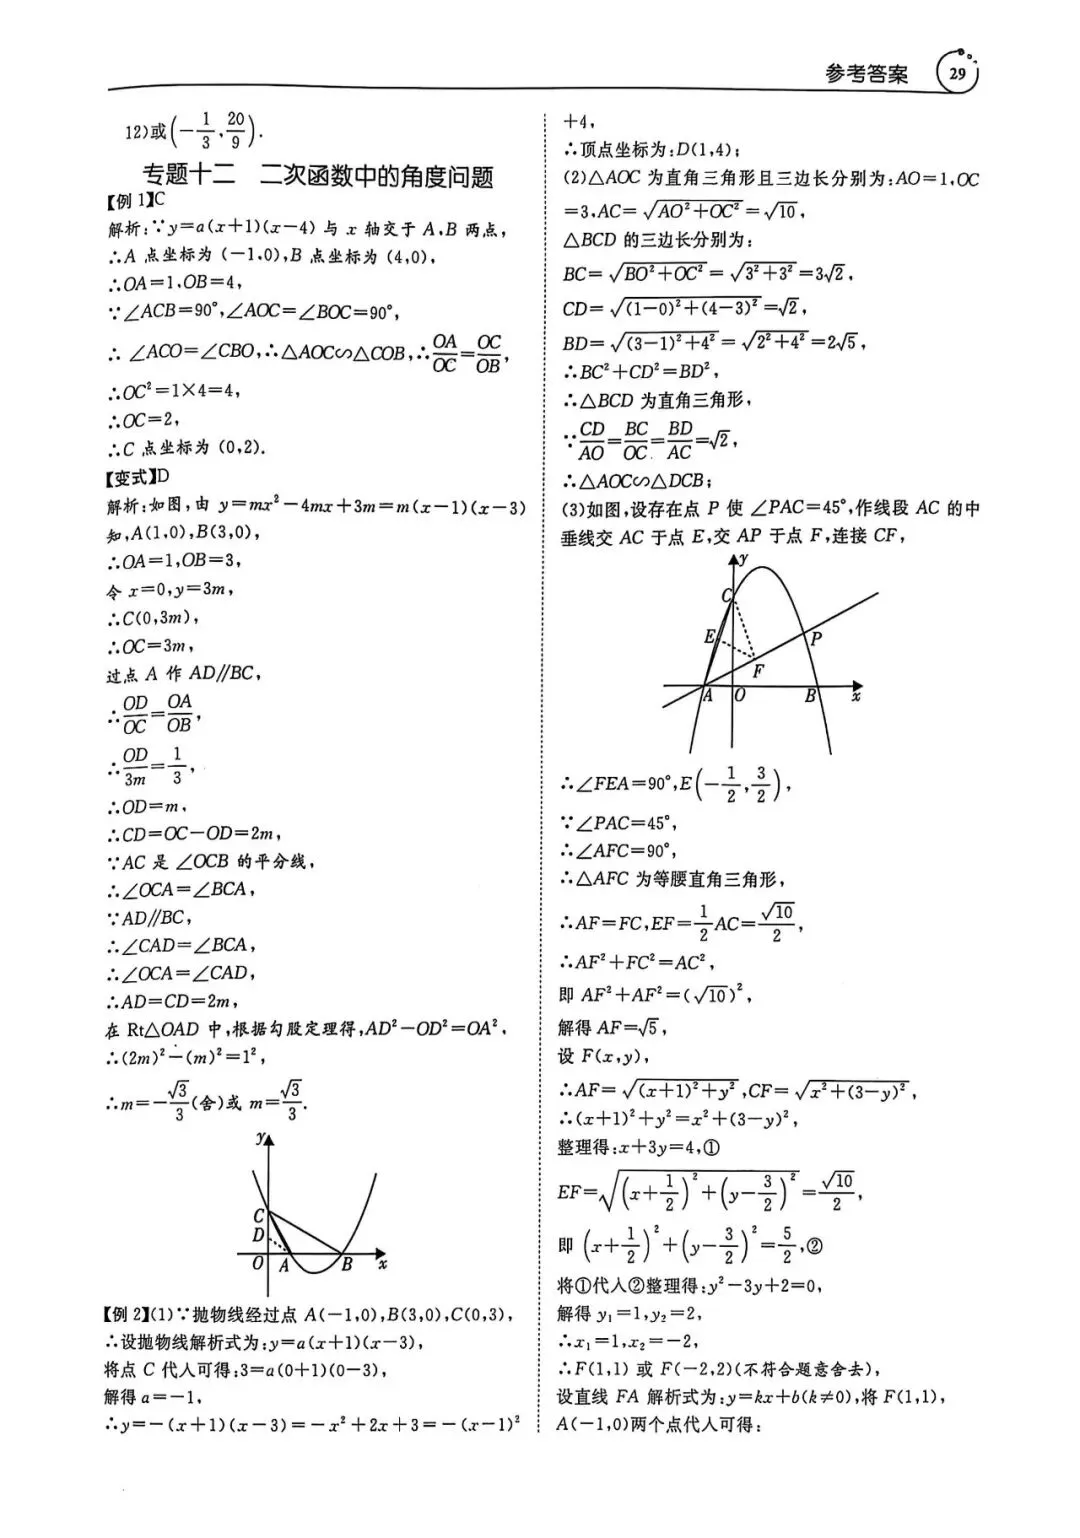 参考答案 29
12)或(-1/3,20/9).
专题十二 二次函数中的角度问题
【例1】C
解析:∵y=a(x+1)(x-4)与 x 轴交于 A,B 两点,
∴A 点坐标为 (-1,0),B 点坐标为 (4,0),
∴OA=1,OB=4,
∵∠ACB=90°,∠AOC=∠BOC=90°,
∴∠ACO=∠CBO,∴△AOC∽△COB,∴OA/OC=OC/OB,
∴OC²=1×4=4,
∴OC=2,
∴C 点坐标为 (0,2).
【变式】D
解析:如图,由 y=mx²-4mx+3m=m(x-1)(x-3)
知,A(1,0),B(3,0),
∴OA=1,OB=3,
令 x=0,y=3m,
∴C(0,3m),
∴OC=3m,
过点 A 作 AD∥BC,
∴OD/OC=OA/OB,
∴OD/3m=1/3,
∴OD=m,
∴CD=OC-OD=2m,
∵AC 是 ∠OCB 的平分线,
∴∠OCA=∠BCA,
∵AD∥BC,
∴∠CAD=∠BCA,
∴∠OCA=∠CAD,
∴AD=CD=2m,
在 Rt△OAD 中,根据勾股定理得,AD²-OD²=OA²,
∴(2m)²-(m)²=1²,
∴m=-√3/3(舍)或 m=√3/3.
y
C
D
O A B x
【例2】(1)∵抛物线经过点 A(-1,0),B(3,0),C(0,3),
∴设抛物线解析式为:y=a(x+1)(x-3),
将点 C 代入可得:3=a(0+1)(0-3),
解得 a=-1,
∴y=-(x+1)(x-3)=-x²+2x+3=-(x-1)²
+4,
∴顶点坐标为:D(1,4);
(2)△AOC 为直角三角形且三边长分别为:AO=1,OC
=3,AC=√(AO²+OC²)=√10,
△BCD 的三边长分别为:
BC=√(BO²+OC²)=√(3²+3²)=3√2,
CD=√((1-0)²+(4-3)²)=√2,
BD=√((3-1)²+4²)=√(2²+4²)=2√5,
∴BC²+CD²=BD²,
∴△BCD 为直角三角形,
∵CD/AO=BC/OC=BD/AC=√2,
∴△AOC∽△DCB;
(3)如图,设存在点 P 使 ∠PAC=45°,作线段 AC 的中
垂线交 AC 于点 E,交 AP 于点 F,连接 CF,
y
C
E P
F
A O B x
∴∠FEA=90°,E(-1/2,3/2),
∵∠PAC=45°,
∴∠AFC=90°,
∴△AFC 为等腰直角三角形,
∴AF=FC,EF=1/2AC=√10/2,
∴AF²+FC²=AC²,
即 AF²+AF²=(√10)²,
解得 AF=√5,
设 F(x,y),
∴AF=√((x+1)²+y²),CF=√(x²+(3-y)²),
∴(x+1)²+y²=x²+(3-y)²,
整理得:x+3y=4,①
EF=√((x+1/2)²+(y-3/2)²)=√10/2,
即 (x+1/2)²+(y-3/2)²=5/2,②
将①代入②整理得:y²-3y+2=0,
解得 y₁=1,y₂=2,
∴x₁=1,x₂=-2,
∴F(1,1) 或 F(-2,2)(不符合题意舍去),
设直线 FA 解析式为:y=kx+b(k≠0),将 F(1,1),
A(-1,0)两个点代入可得: